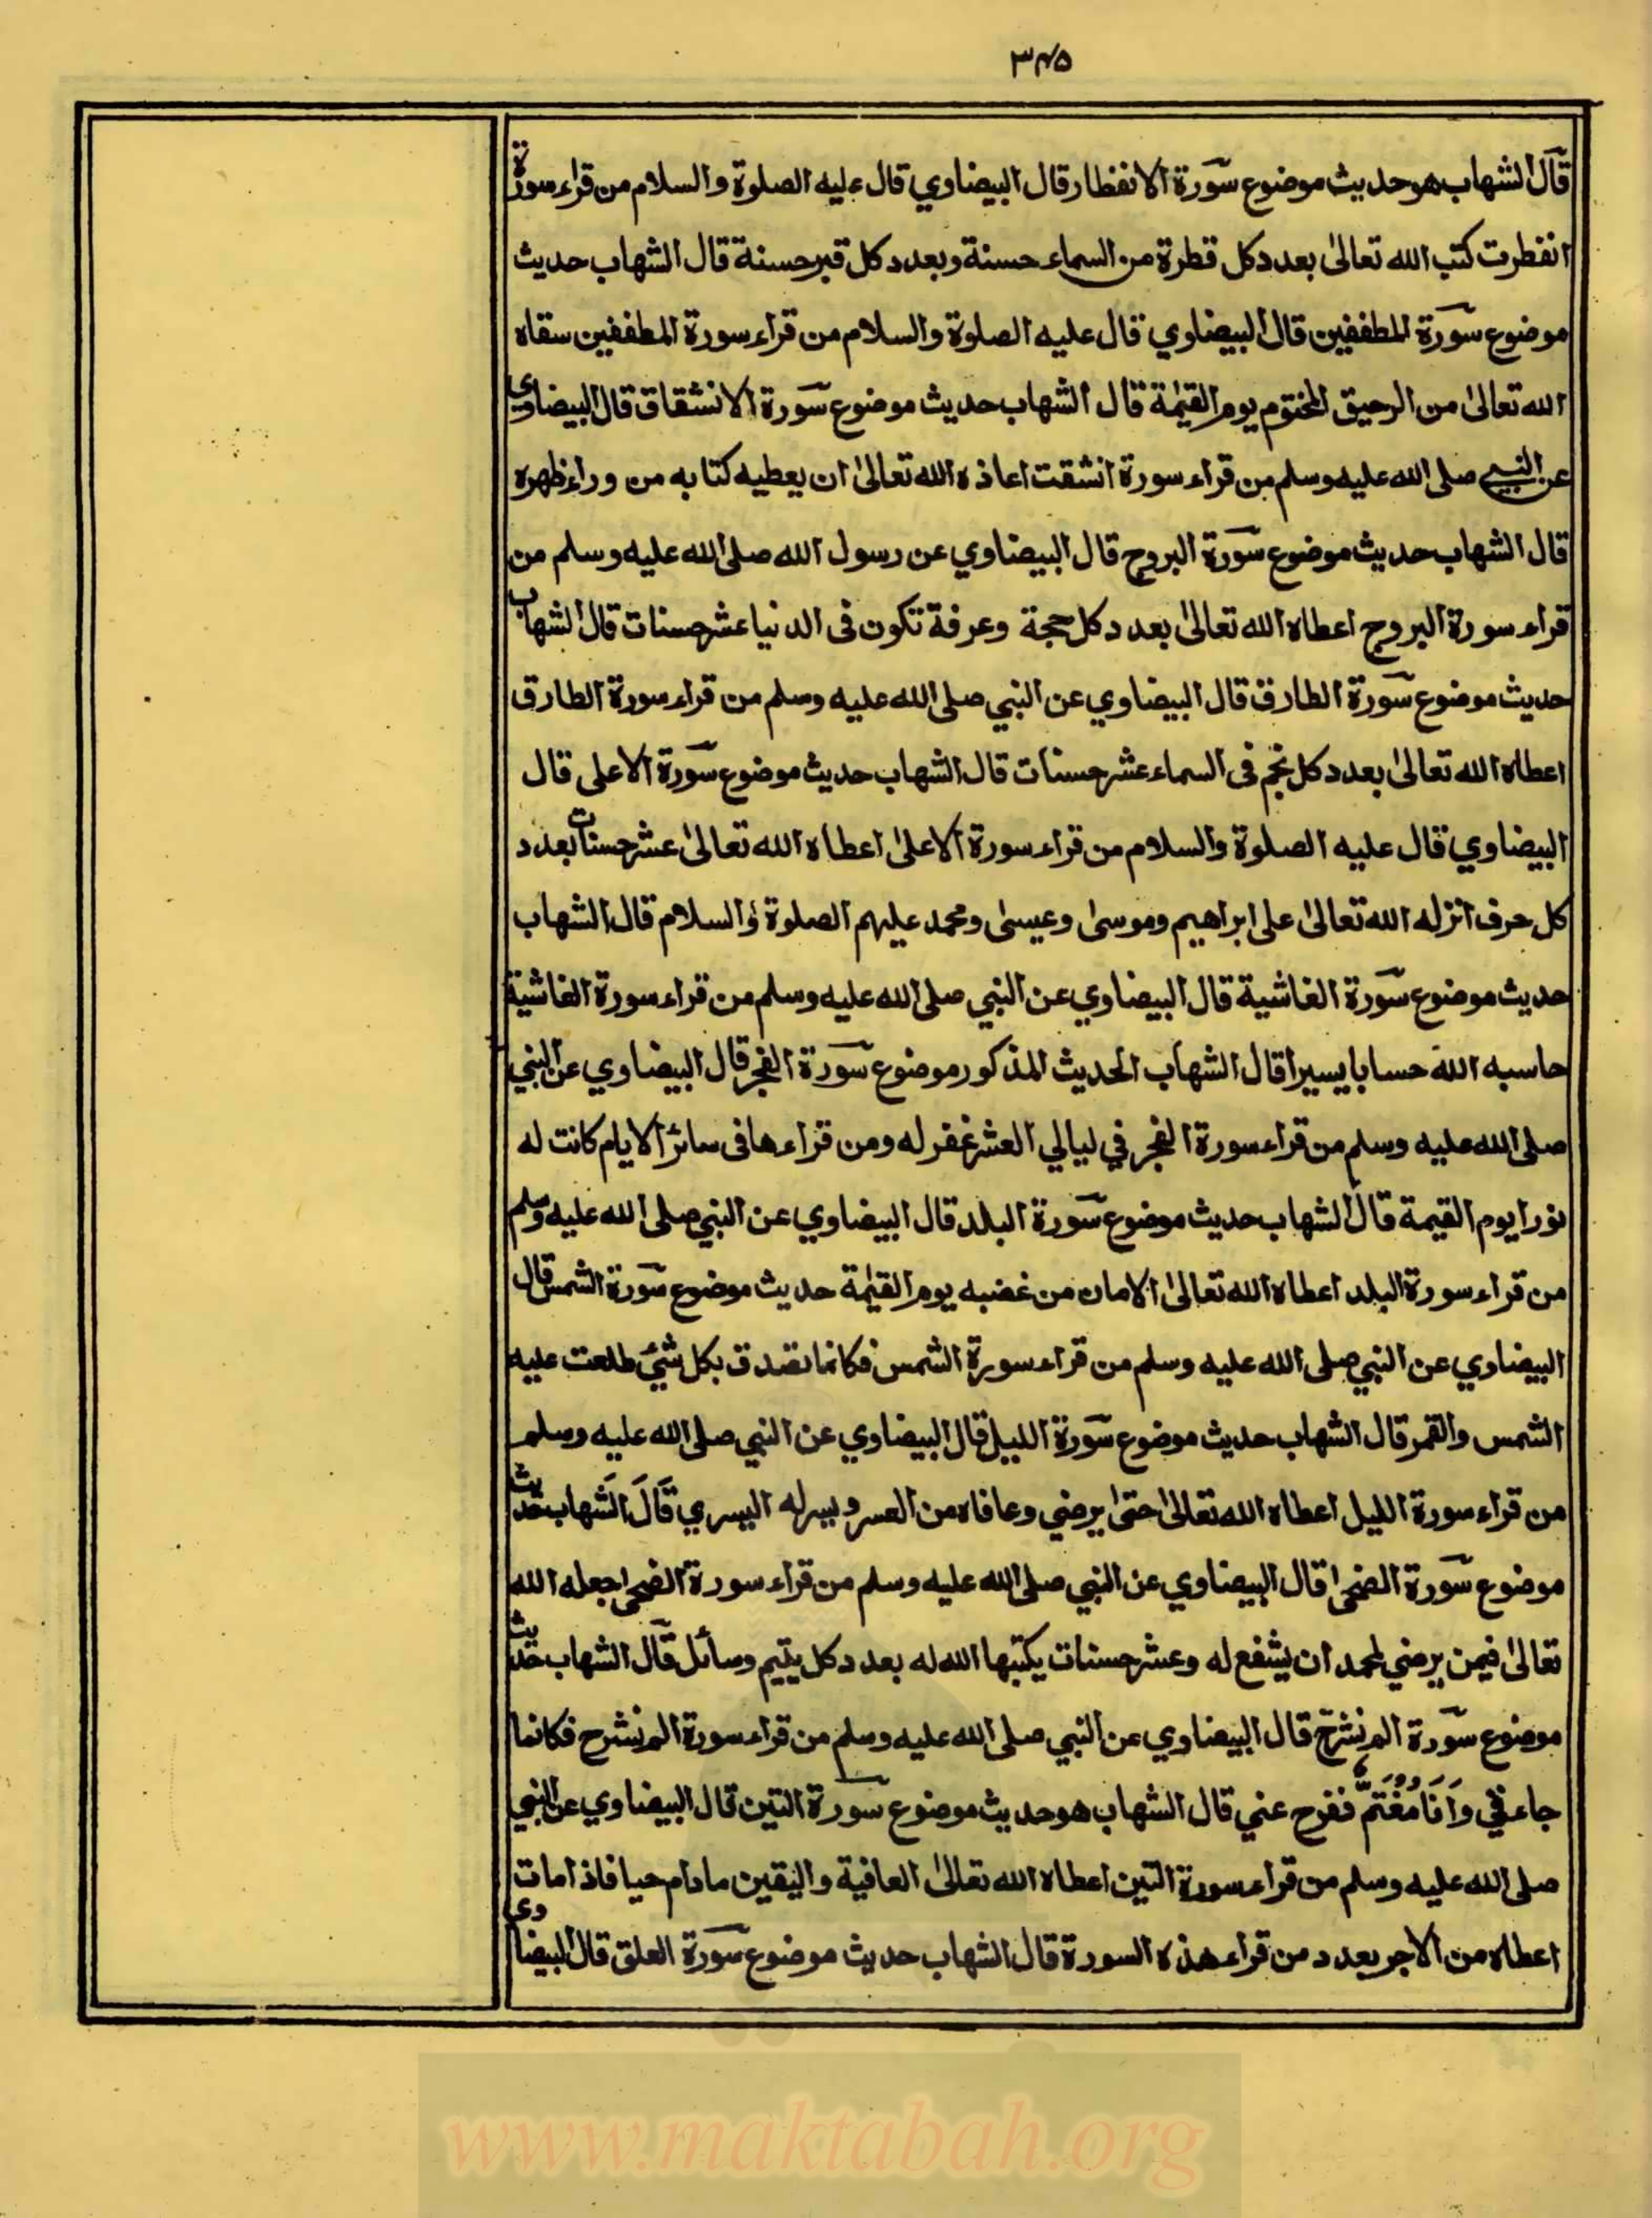 ٣٤٥
قال الشهاب هو حديث موضوع سورة الانفطار قال البيضاوي قال عليه الصلوة والسلام من قراء سورة
انفطرت كتب الله تعالىٰ بعدد كل قطرة من السماء حسنة وبعدد كل قبر حسنة قال الشهاب حديث
موضوع سورة المطففين قال البيضاوي قال عليه الصلوة والسلام من قراء سورة المطففين سقاه
الله تعالىٰ من الرحيق المختوم يوم القيٰمة قال الشهاب حديث موضوع سورة الانشقاق قال البيضاوي
عن النبي صلى الله عليه وسلم من قراء سورة انشقت اعاذه الله تعالىٰ ان يعطيه كتابه من وراء ظهره
قال الشهاب حديث موضوع سورة البروج قال البيضاوي عن رسول الله صلى الله عليه وسلم من
قراء سورة البروج اعطاه الله تعالىٰ بعدد كل حجة وعرفة تكون فى الدنيا عشر حسنات قال الشهاب
حديث موضوع سورة الطارق قال البيضاوي عن النبي صلى الله عليه وسلم من قراء سورة الطارق
اعطاه الله تعالىٰ بعدد كل نجم فى السماء عشر حسنات قال الشهاب حديث موضوع سورة الاعلى قال
البيضاوي قال عليه الصلوة والسلام من قراء سورة الاعلىٰ اعطاه الله تعالىٰ عشر حسنات بعدد
كل حرف انزله الله تعالىٰ على ابراهيم وموسىٰ وعيسىٰ ومحمد عليهم الصلوة والسلام قال الشهاب
حديث موضوع سورة الغاشية قال البيضاوي عن النبي صلى الله عليه وسلم من قراء سورة الغاشية
حاسبه الله حسابا يسيرا قال الشهاب الحديث المذكور موضوع سورة الفجر قال البيضاوي عن النبي
صلى الله عليه وسلم من قراء سورة الفجر في ليالي العشر غفر له ومن قراءها فى سائر الايام كانت له
نورا يوم القيمة قال الشهاب حديث موضوع سورة البلد قال البيضاوي عن النبي صلى الله عليه وسلم
من قراء سورة البلد اعطاه الله تعالىٰ الامان من غضبه يوم القيٰمة حديث موضوع سورة الشمس قال
البيضاوي عن النبي صلى الله عليه وسلم من قراء سورة الشمس فكانما تصدق بكل شئ طلعت عليه
الشمس والقمر قال الشهاب حديث موضوع سورة الليل قال البيضاوي عن النبي صلى الله عليه وسلم
من قراء سورة الليل اعطاه الله تعالىٰ حتىٰ يرضي وعافاه من العسر ويسر له اليسري قَالَ الشَهاب حديث
موضوع سورة الضحىٰ قال البيضاوي عن النبي صلى الله عليه وسلم من قراء سورة الضحىٰ جعله الله
تعالىٰ فيمن يرضي لمحمد ان يشفع له وعشر حسنات يكتبها الله له بعدد كل يتيم وسائل قال الشهاب حديث
موضوع سورة الم نشرح قال البيضاوي عن النبي صلى الله عليه وسلم من قراء سورة الم نشرح فكانما
جاءني وَاَنَا مُغْتَمٌّ ففرح عني قال الشهاب هو حديث موضوع سورة التين قال البيضاوي عن النبي
صلى الله عليه وسلم من قراء سورة التين اعطاه الله تعالىٰ العافية واليقين مادام حيا فاذا مات
اعطاه من الاجر بعدد من قراء هذه السورة قال الشهاب حديث موضوع سورة العلق قال البيضاوى
www.maktabah.org